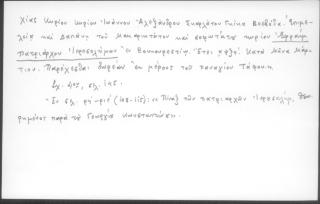 Χίας Κυρίου Κυρίου Ἰωάννου Ἀλεξάνδρου Σκαρλάτου Γκίκα Βοεβόδα. Ἐπιμε-
λείᾳ καὶ δαπάνῃ τοῦ Μακαριωτάτου καὶ σοφωτάτου κυρίου Ἐφραὶμ
Πατριάρχου Ἱεροσολύμων ἐν Βουκουρεστίῳ. Ἔτει ͵αψξη΄. Κατὰ Μῆνα Μάρ-
τιον. Παρέχεσθαι δωρεὰν ἐκ μέρους τοῦ παναγίου Τάφου.
Σχ. 4ον, σελ.
Ἐν σελ. (108-115): Πίναξ τῶν πατριαρχῶν Ἱερουσαλήμ,
παρὰ τοῦ Γεωργίου Κωνσταντίνου.